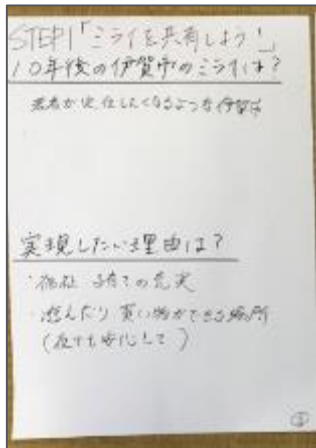 STEP1「ミライを共有しよう!」
10年後の伊賀市のミライは?
若者が定住したくなるような伊賀市
実現したい理由は?
・福祉 子育ての充実
・遊んだり 買い物ができる場所
(夜でも安心して)